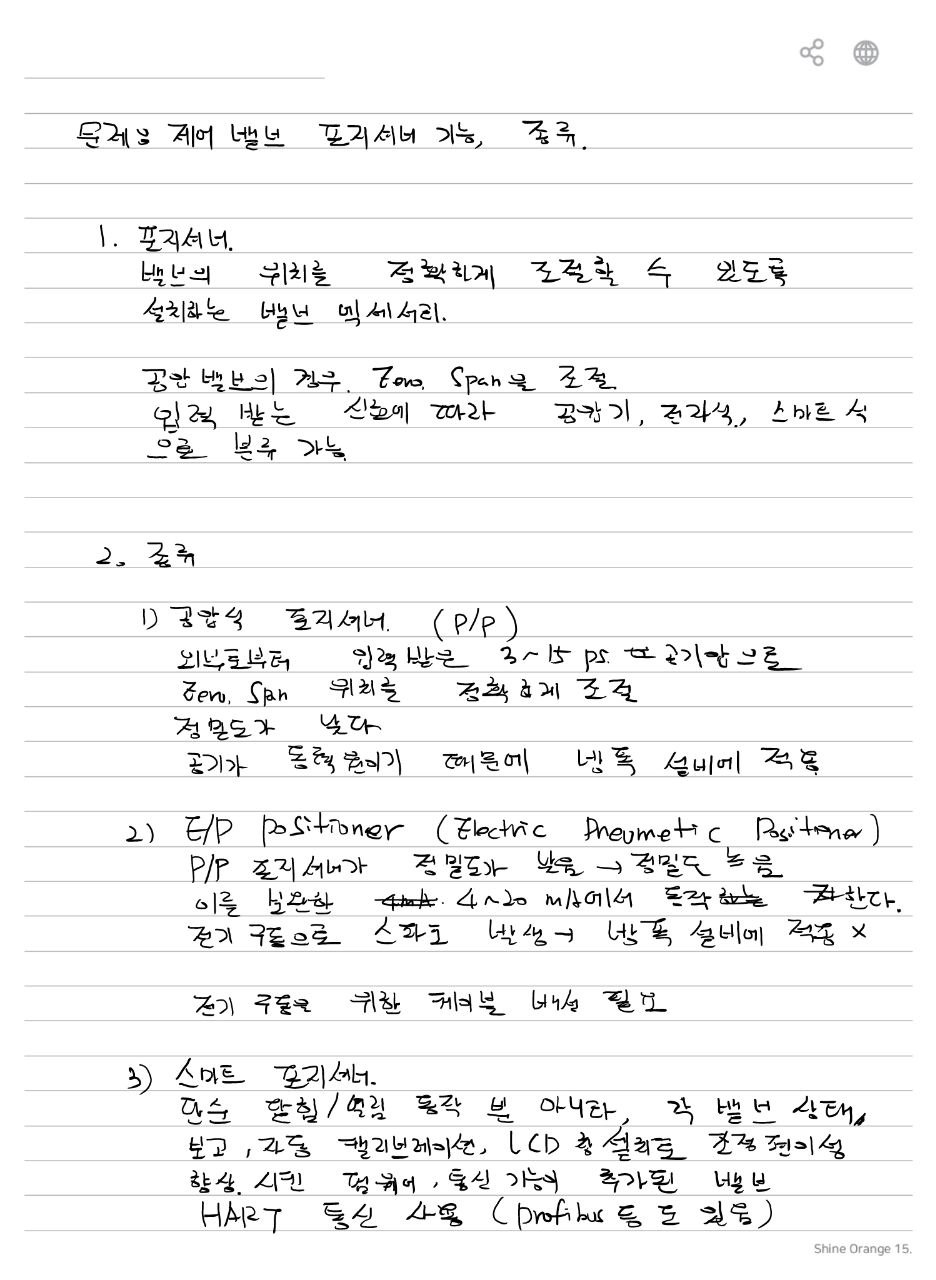 문제 8 제어 밸브 포지셔너 기능, 종류.
1. 포지셔너.
밸브의 위치를 정확하게 조절할 수 있도록
설치하는 밸브 엑세서리.
공압 밸브의 경우. Zero, Span을 조절
입력 받는 신호에 따라 공압기, 전자식, 스마트 식
으로 분류 가능
2. 종류
1) 공압식 포지셔너. (P/P)
외부로부터 입력 받은 3~15 ps. 공기압으로
Zero, Span 위치를 정확하게 조절
정밀도가 낮다
공기가 동력원이기 때문에 방폭 설비에 적용
2) E/P positioner (Electric Pneumetic Positioner)
P/P 포지셔너가 정밀도가 낮음 → 정밀도 높음
이를 보완한 4~20 mA에서 동작한다.
전기 구동으로 스파크 발생 → 방폭 설비에 적용 ×
전기 구동을 위한 케이블 배선 필요
3) 스마트 포지셔너.
단순 닫힘/열림 동작 뿐 아니라, 각 밸브 상태,
보고, 자동 캘리브레이션, LCD 창 설치로 조정 편이성
향상 시킨 펌웨어, 통신 기능이 추가된 밸브
HART 통신 사용 (profibus 등도 있음)
Shine Orange 15.